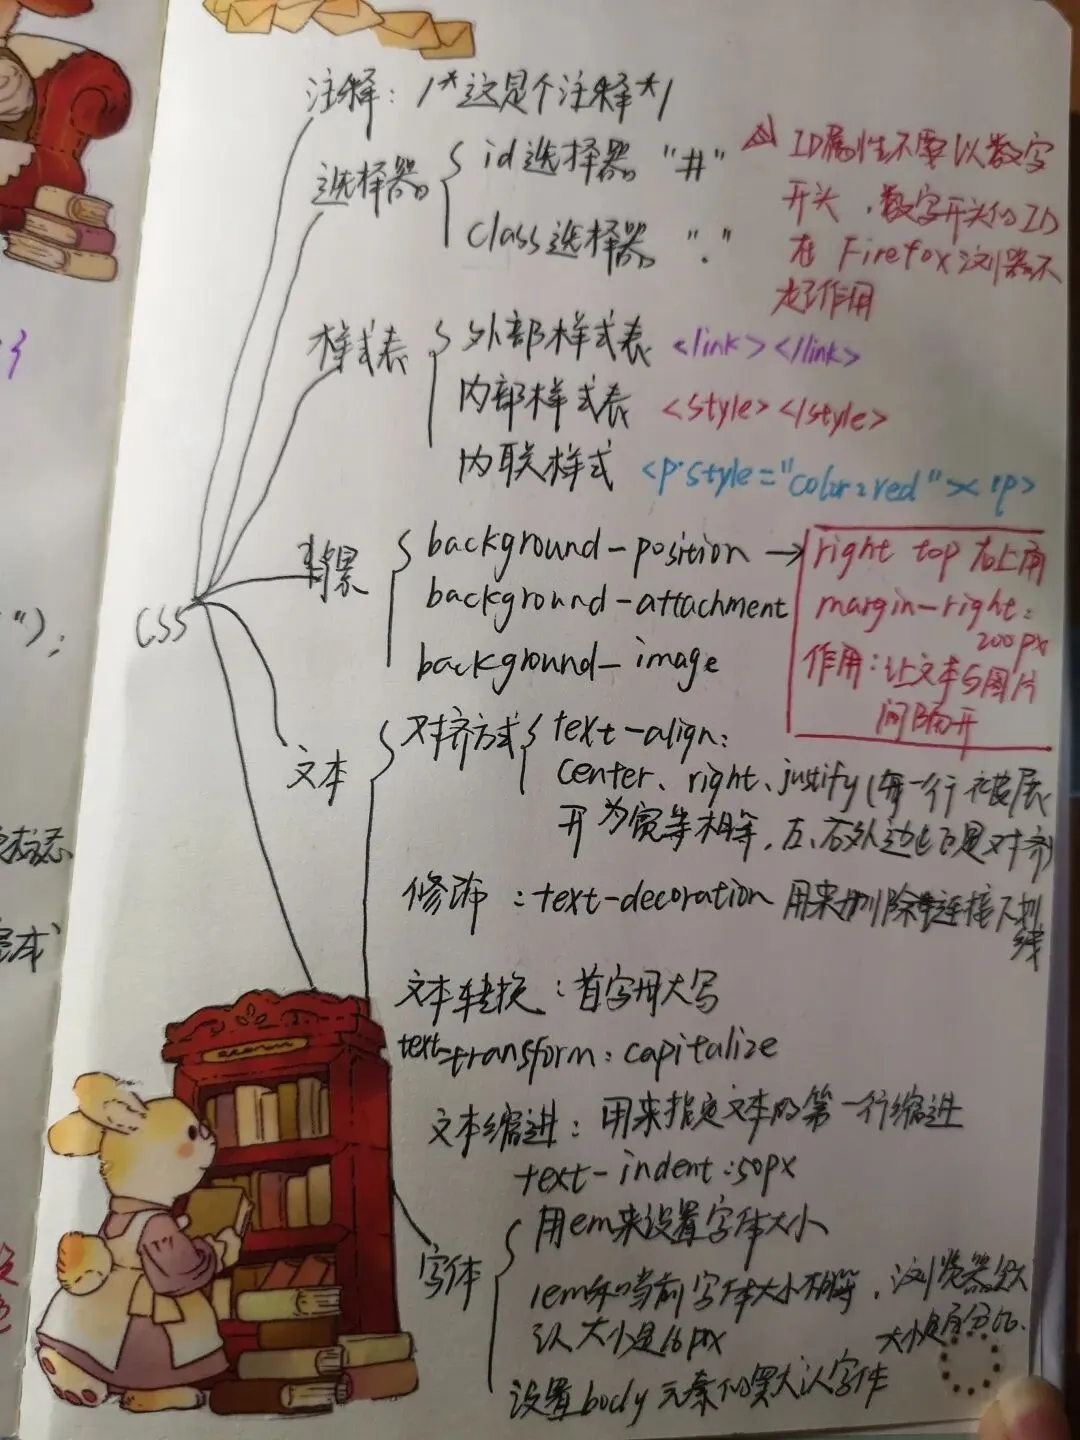 注释：/*这是个注释*/
选择器 id选择器 "#"
class选择器 "."
ID属性不要以数字
开头，数字开头的ID
在Firefox浏览器不
起作用
样式表 外部样式表 <link></link>
内部样式表 <style></style>
内联样式 <p style="color:red"></p>
CSS
背景 background-position → right top 右上角
background-attachment margin-right:
200px
background-image 作用：让文本与图片
间隔开
文本 对齐方式 text-align:
center、right、justify(每一行被展
开为宽等相等，左、右外边也是对齐)
修饰：text-decoration 用来删除链接下划
线
文本转换：首字母大写
text-transform: capitalize
文本缩进：用来指定文本的第一行缩进
text-indent:50px
字体 用em来设置字体大小
1em和当前字体大小相等，浏览器默
认大小是16px
大小是百分比.
设置body元素的默认字体
");